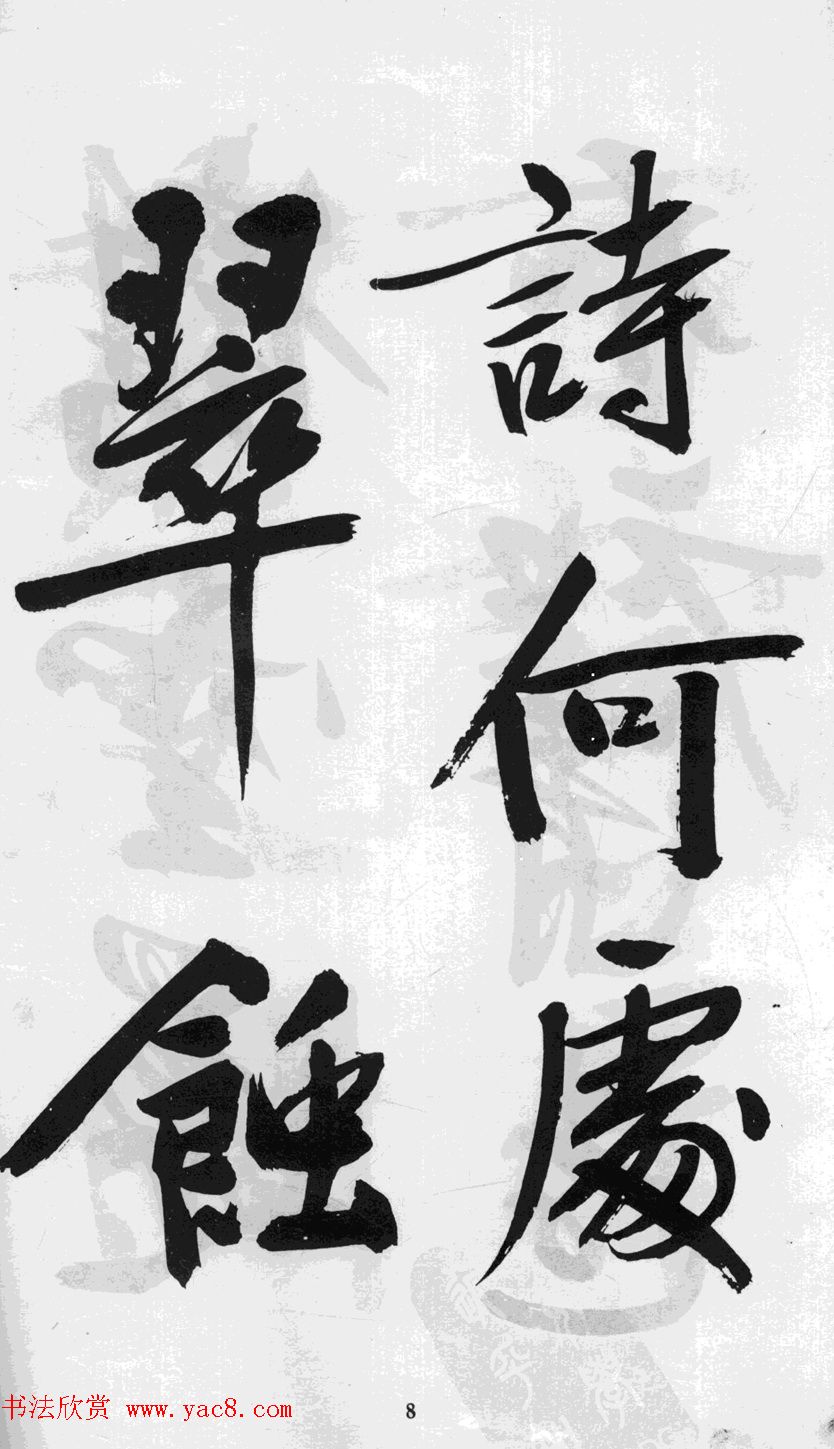 詩何處
翠蝕
8
书法欣赏 www.yac8.com